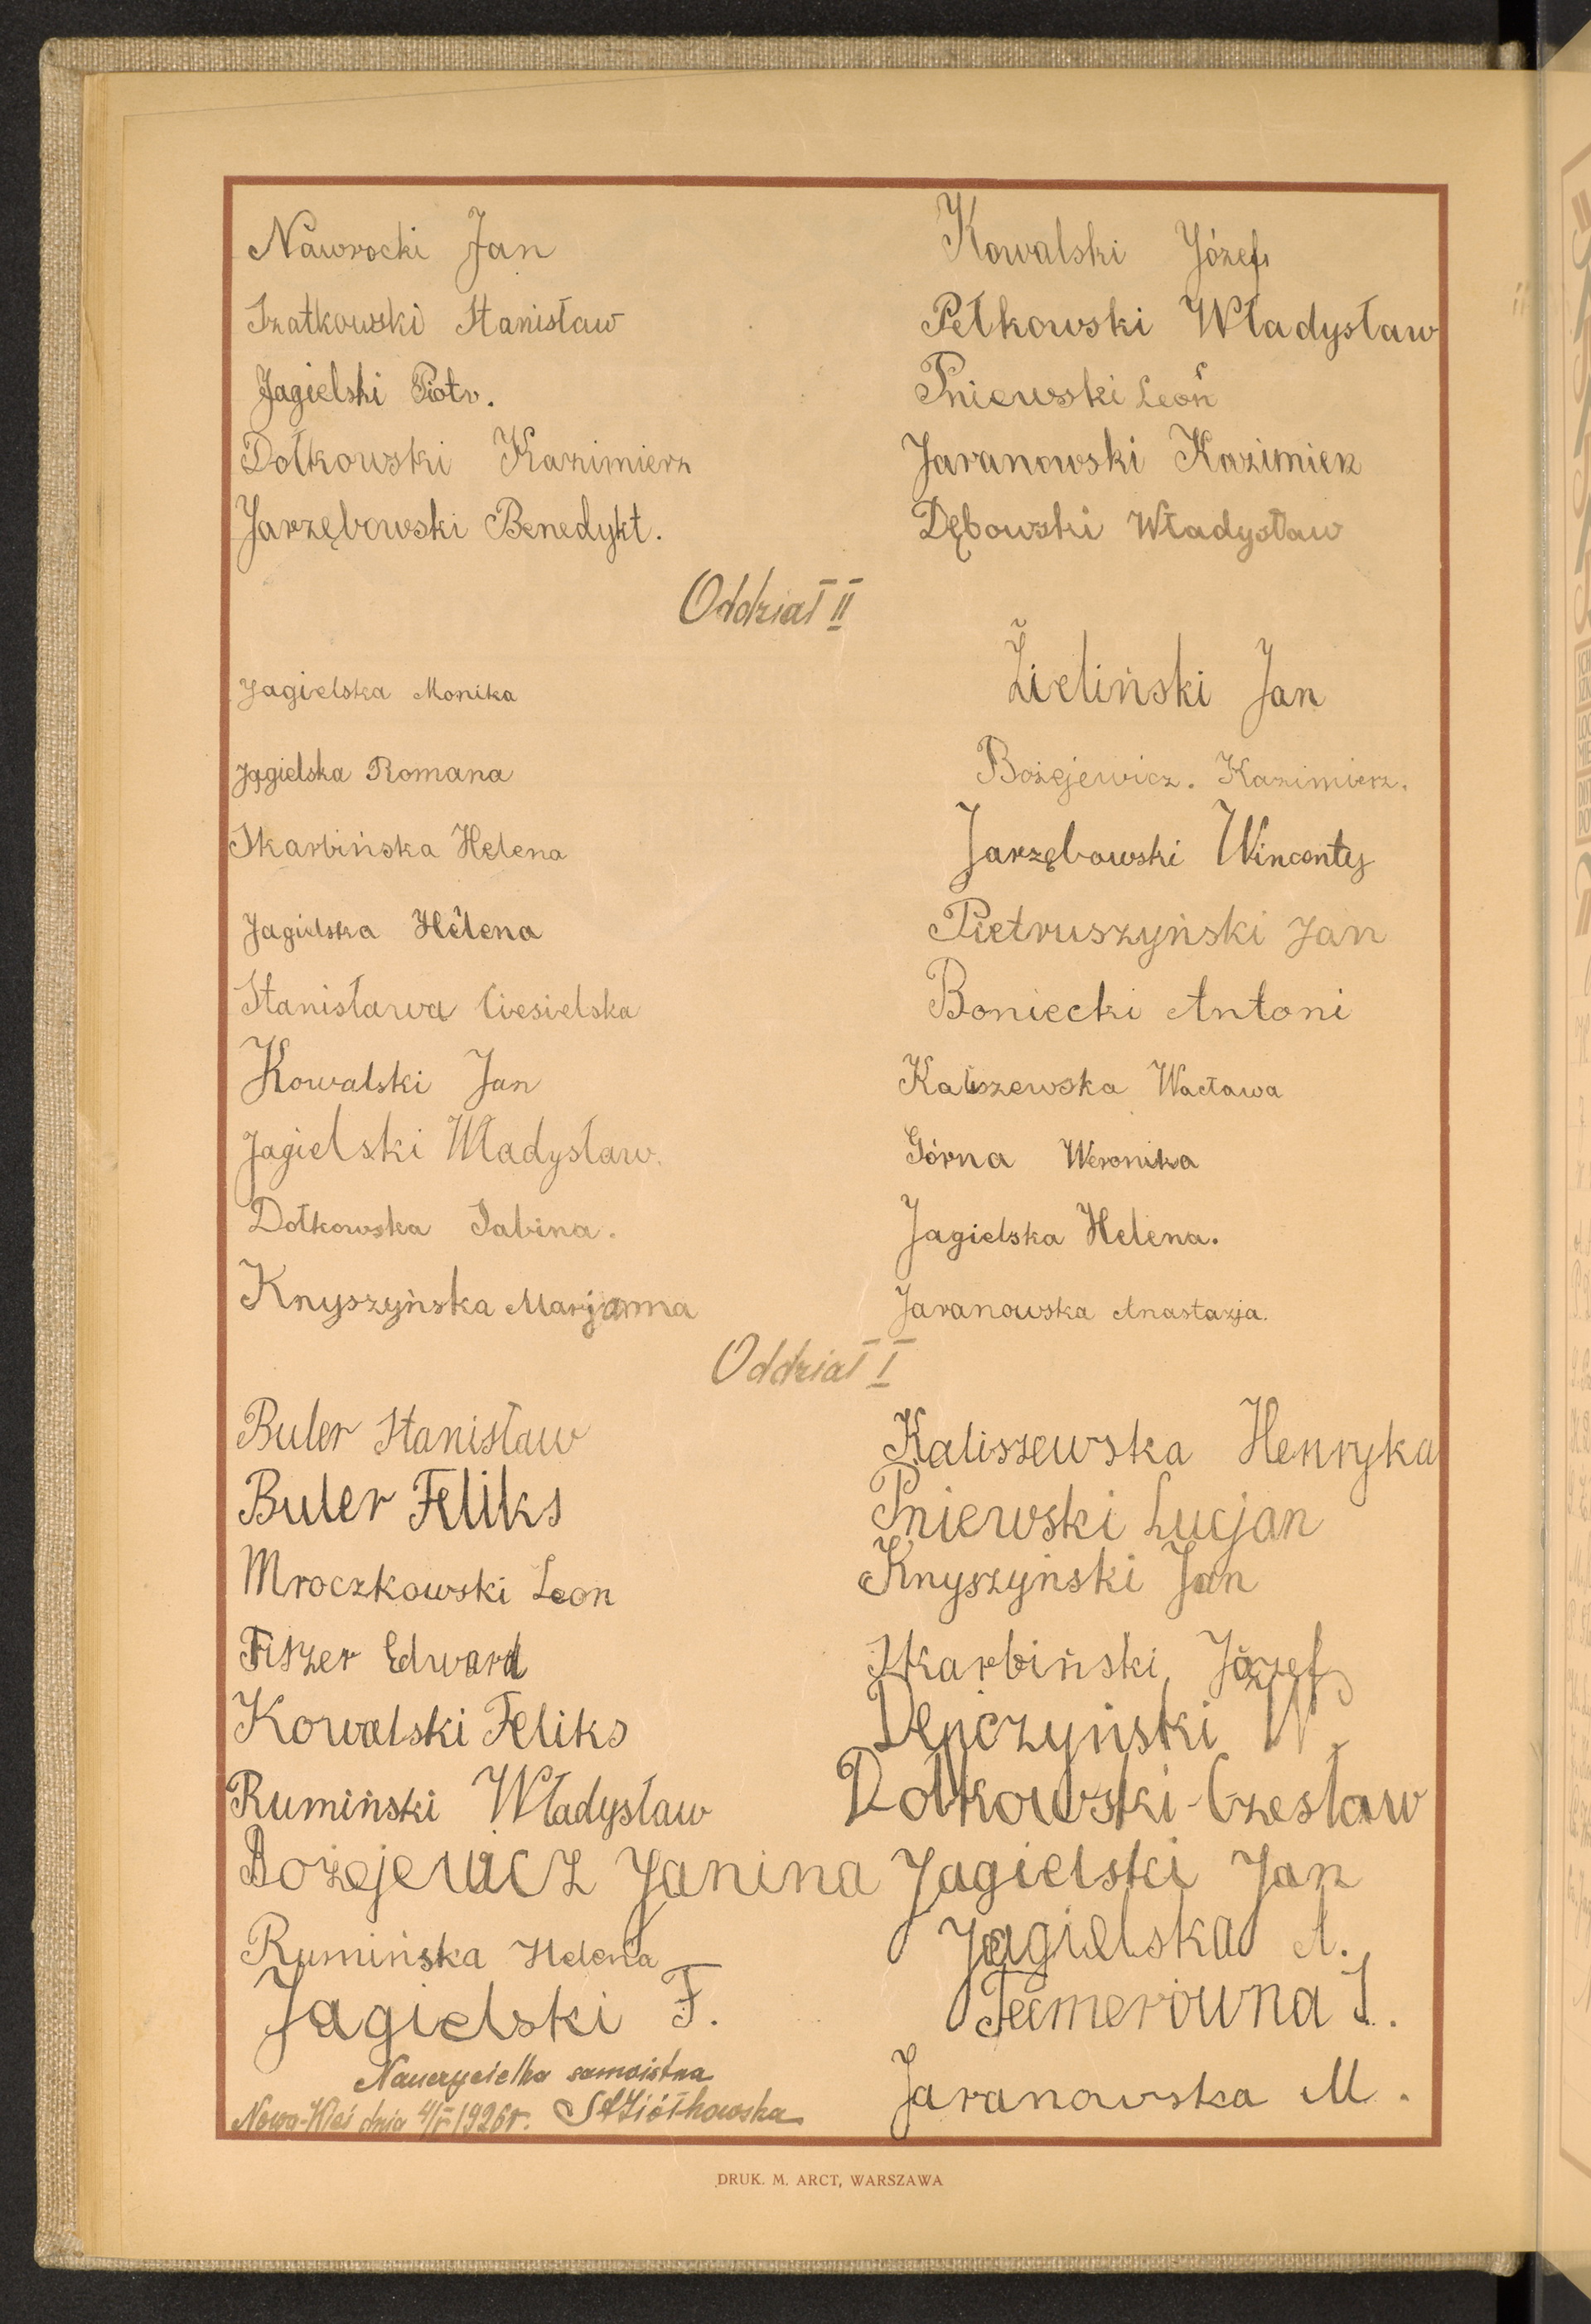 Nawrocki Jan
Szatkowski Stanisław
Jagielski Piotr.
Dołkowski Kazimierz
Jarzębowski Benedykt.
Kowalski Józef
Petkowski Władysław
Pniewski Leon
Jaranowski Kazimierz
Dębowski Władysław
Oddział II
Jagielska Monika
Jagielska Romana
Skarbińska Helena
Jagielska Helena
Stanisława Ciesielska
Kowalski Jan
Jagielski Władysław.
Dołkowska Sabina.
Knyszyńska Marjanna
Zieliński Jan
Bożejewicz. Kazimierz.
Jarzębowski Wincenty
Pietruszyński Jan
Boniecki Antoni
Kaliszewska Wacława
Górna Weronika
Jagielska Helena.
Jaranowska Anastazja.
Oddział I
Buler Stanisław
Buler Feliks
Mroczkowski Leon
Fiszer Edward
Kowalski Feliks
Rumiński Władysław
Bożejewicz Janina
Rumińska Helena
Jagielski F.
Kaliszewska Henryka
Pniewski Lucjan
Knyszyński Jan
Skarbiński Józef
Depczyński W.
Dołkowski Czesław
Jagielski Jan
Jagielska A.
Jaranowska M.
Nauczycielka samoistna
Nowa-Wieś dnia 1926r. St Ziółkowska
DRUK. M. ARCT, WARSZAWA